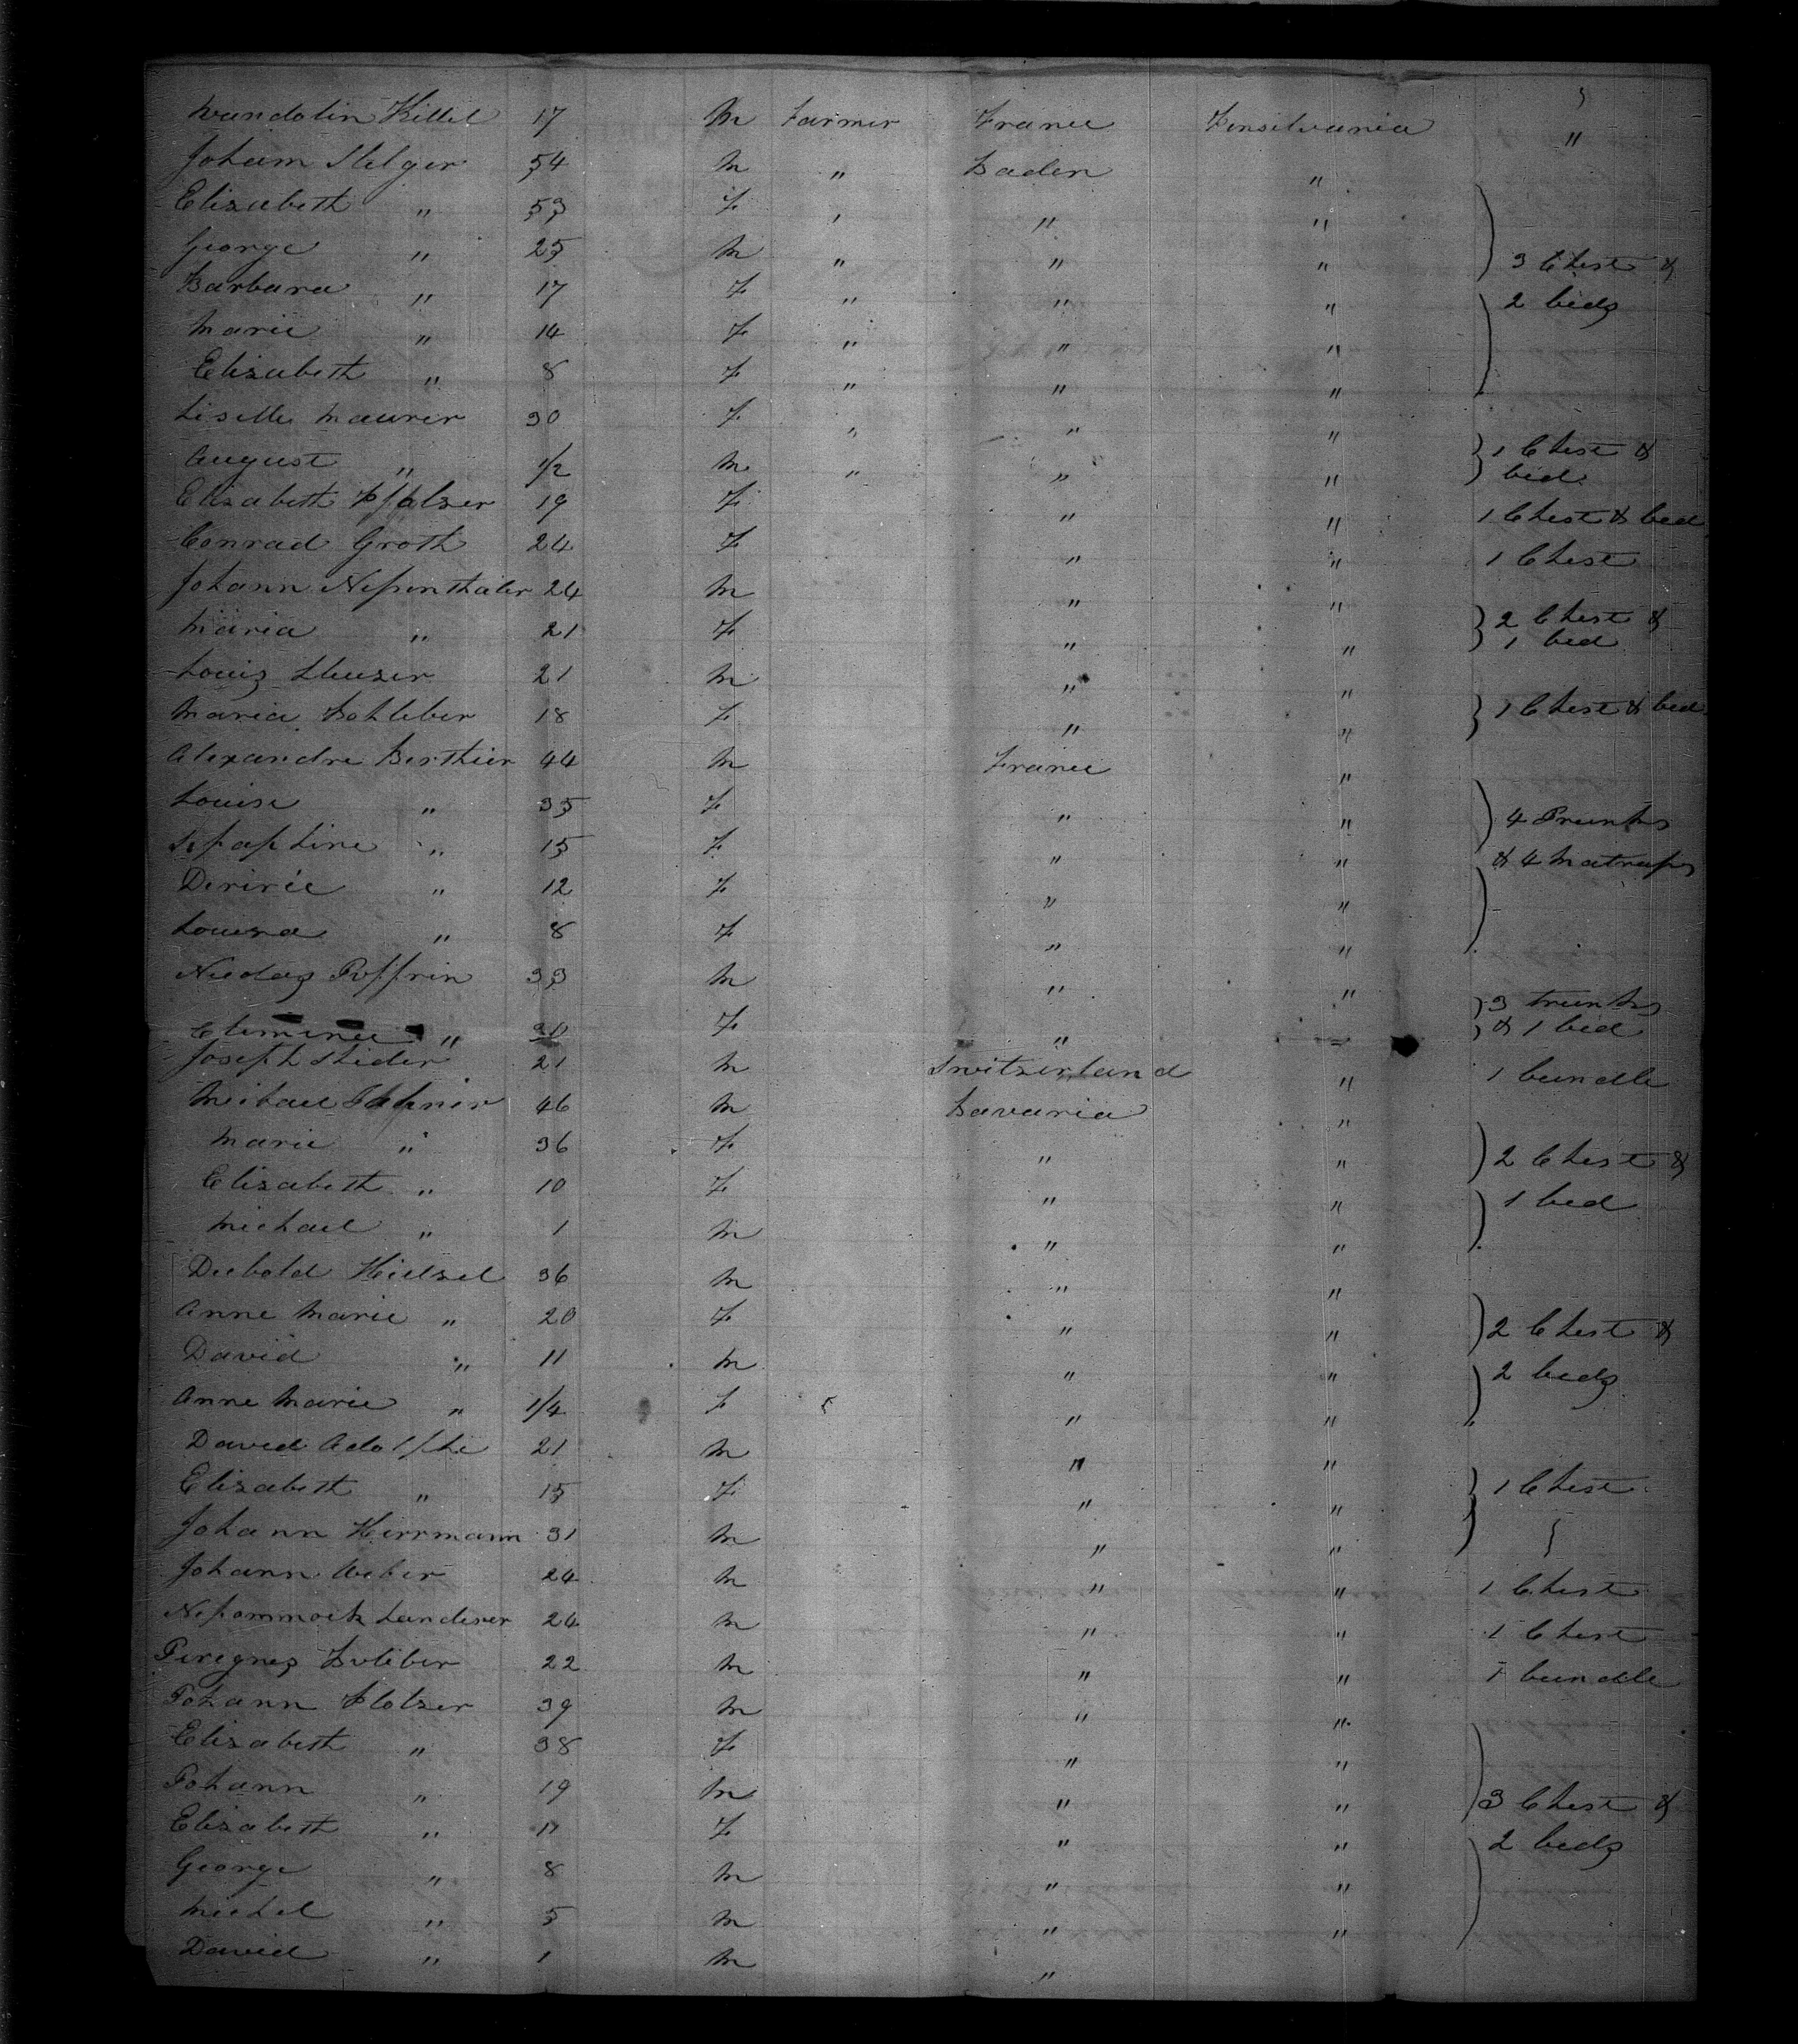 Wandolin Kittel 17 M Farmer France Pensilvania "
Joham Stelger 54 M " Baden "
Elisabeth " 53 F " " "
George " 25 M " " " 3 Chest &
Barbara " 17 F " " " 2 beds
Marie " 14 F " " "
Elisabeth " 8 F " " "
Lisette Maurer 30 F " " "
August " 1/2 M " " " 1 Chest & bed
Elisabeth Pfalzer 19 F " " 1 Chest & bed
Conrad Groth 24 F " " 1 Chest
Johann Neßenthaler 24 M " "
Maria " 21 F " " 2 Chest & 1 bed
Louis 21 M " "
Maria Bohleber 18 F " " 1 Chest & bed
Alexandre Berthier 44 M France "
Louise " 35 F " " 4 Trunks
" 15 F " " & 4 Matraßs
Deririe " 12 F " "
Louisa " 8 F " "
Nicolas Poffrin 33 M " " 3 trunks
Clemence " F " " & 1 bed
Joseph Stider 21 M Switzerland " 1 bundle
Meihael 46 M Bavaria "
Marie " 36 F " " 2 Chest &
Elisabeth " 10 F " " 1 bed
Michael " 1 M " "
Diebold Hielzel 36 M " "
Anne Marie " 20 F " " 2 Chest &
David " 11 M " " 2 beds
Anne Marie " 1/4 F " "
David Adolphe 21 M " "
Elisabeth " 15 F " " 1 Chest
Johann Herrmann 31 M " "
Johann Weber 24 M " " 1 Chest
Nepommock Landerer 24 M " " 1 Chest
Peregnes Boleber 22 M " " 1 bundle
Johann Plotzer 39 M " "
Elisabeth " 38 F " "
Johann " 19 M " " 3 Chest &
Elisabeth " 11 F " " 2 beds
George " 8 M " "
Michel " 5 M " "
David " 1 M "